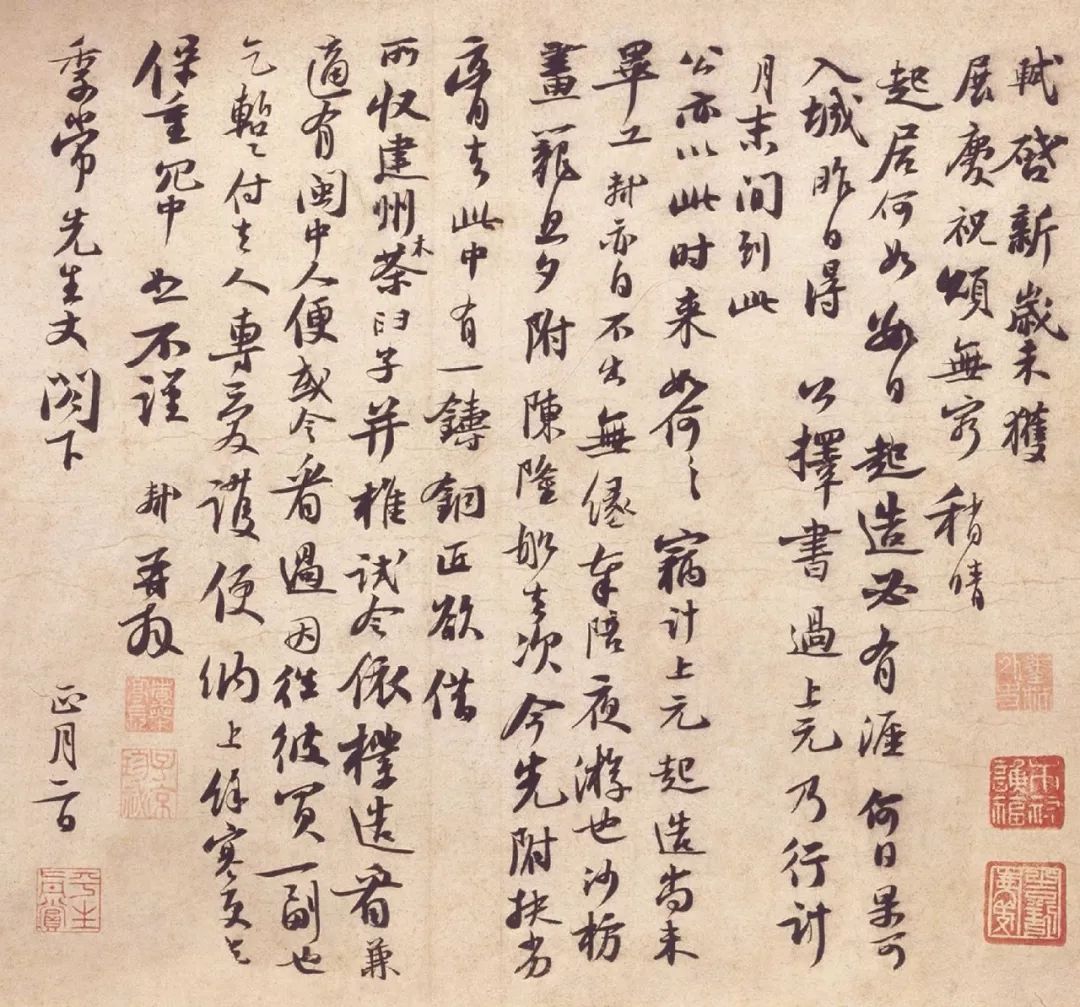 軾啓新歲未獲
展慶祝頌無窮稍晴
起居何如數日起造必有涯何日果可
入城昨日得公擇書過上元乃行計
月末間到此
公亦以此時來如何如何竊計上元起造尚未
畢工軾亦自不出無緣奉陪夜游也沙枋
畫籠旦夕附陳隆船去次今先附扶劣
膏去此中有一鑄銅匠欲借
所收建州木茶臼子并椎試令依樣造看兼
適有閩中人便或令看過因往彼買一副也
乞暫付去人專愛護便納上餘寒更乞
保重冗中恕不謹軾再拜
季常先生丈閣下
正月二日
平生真賞